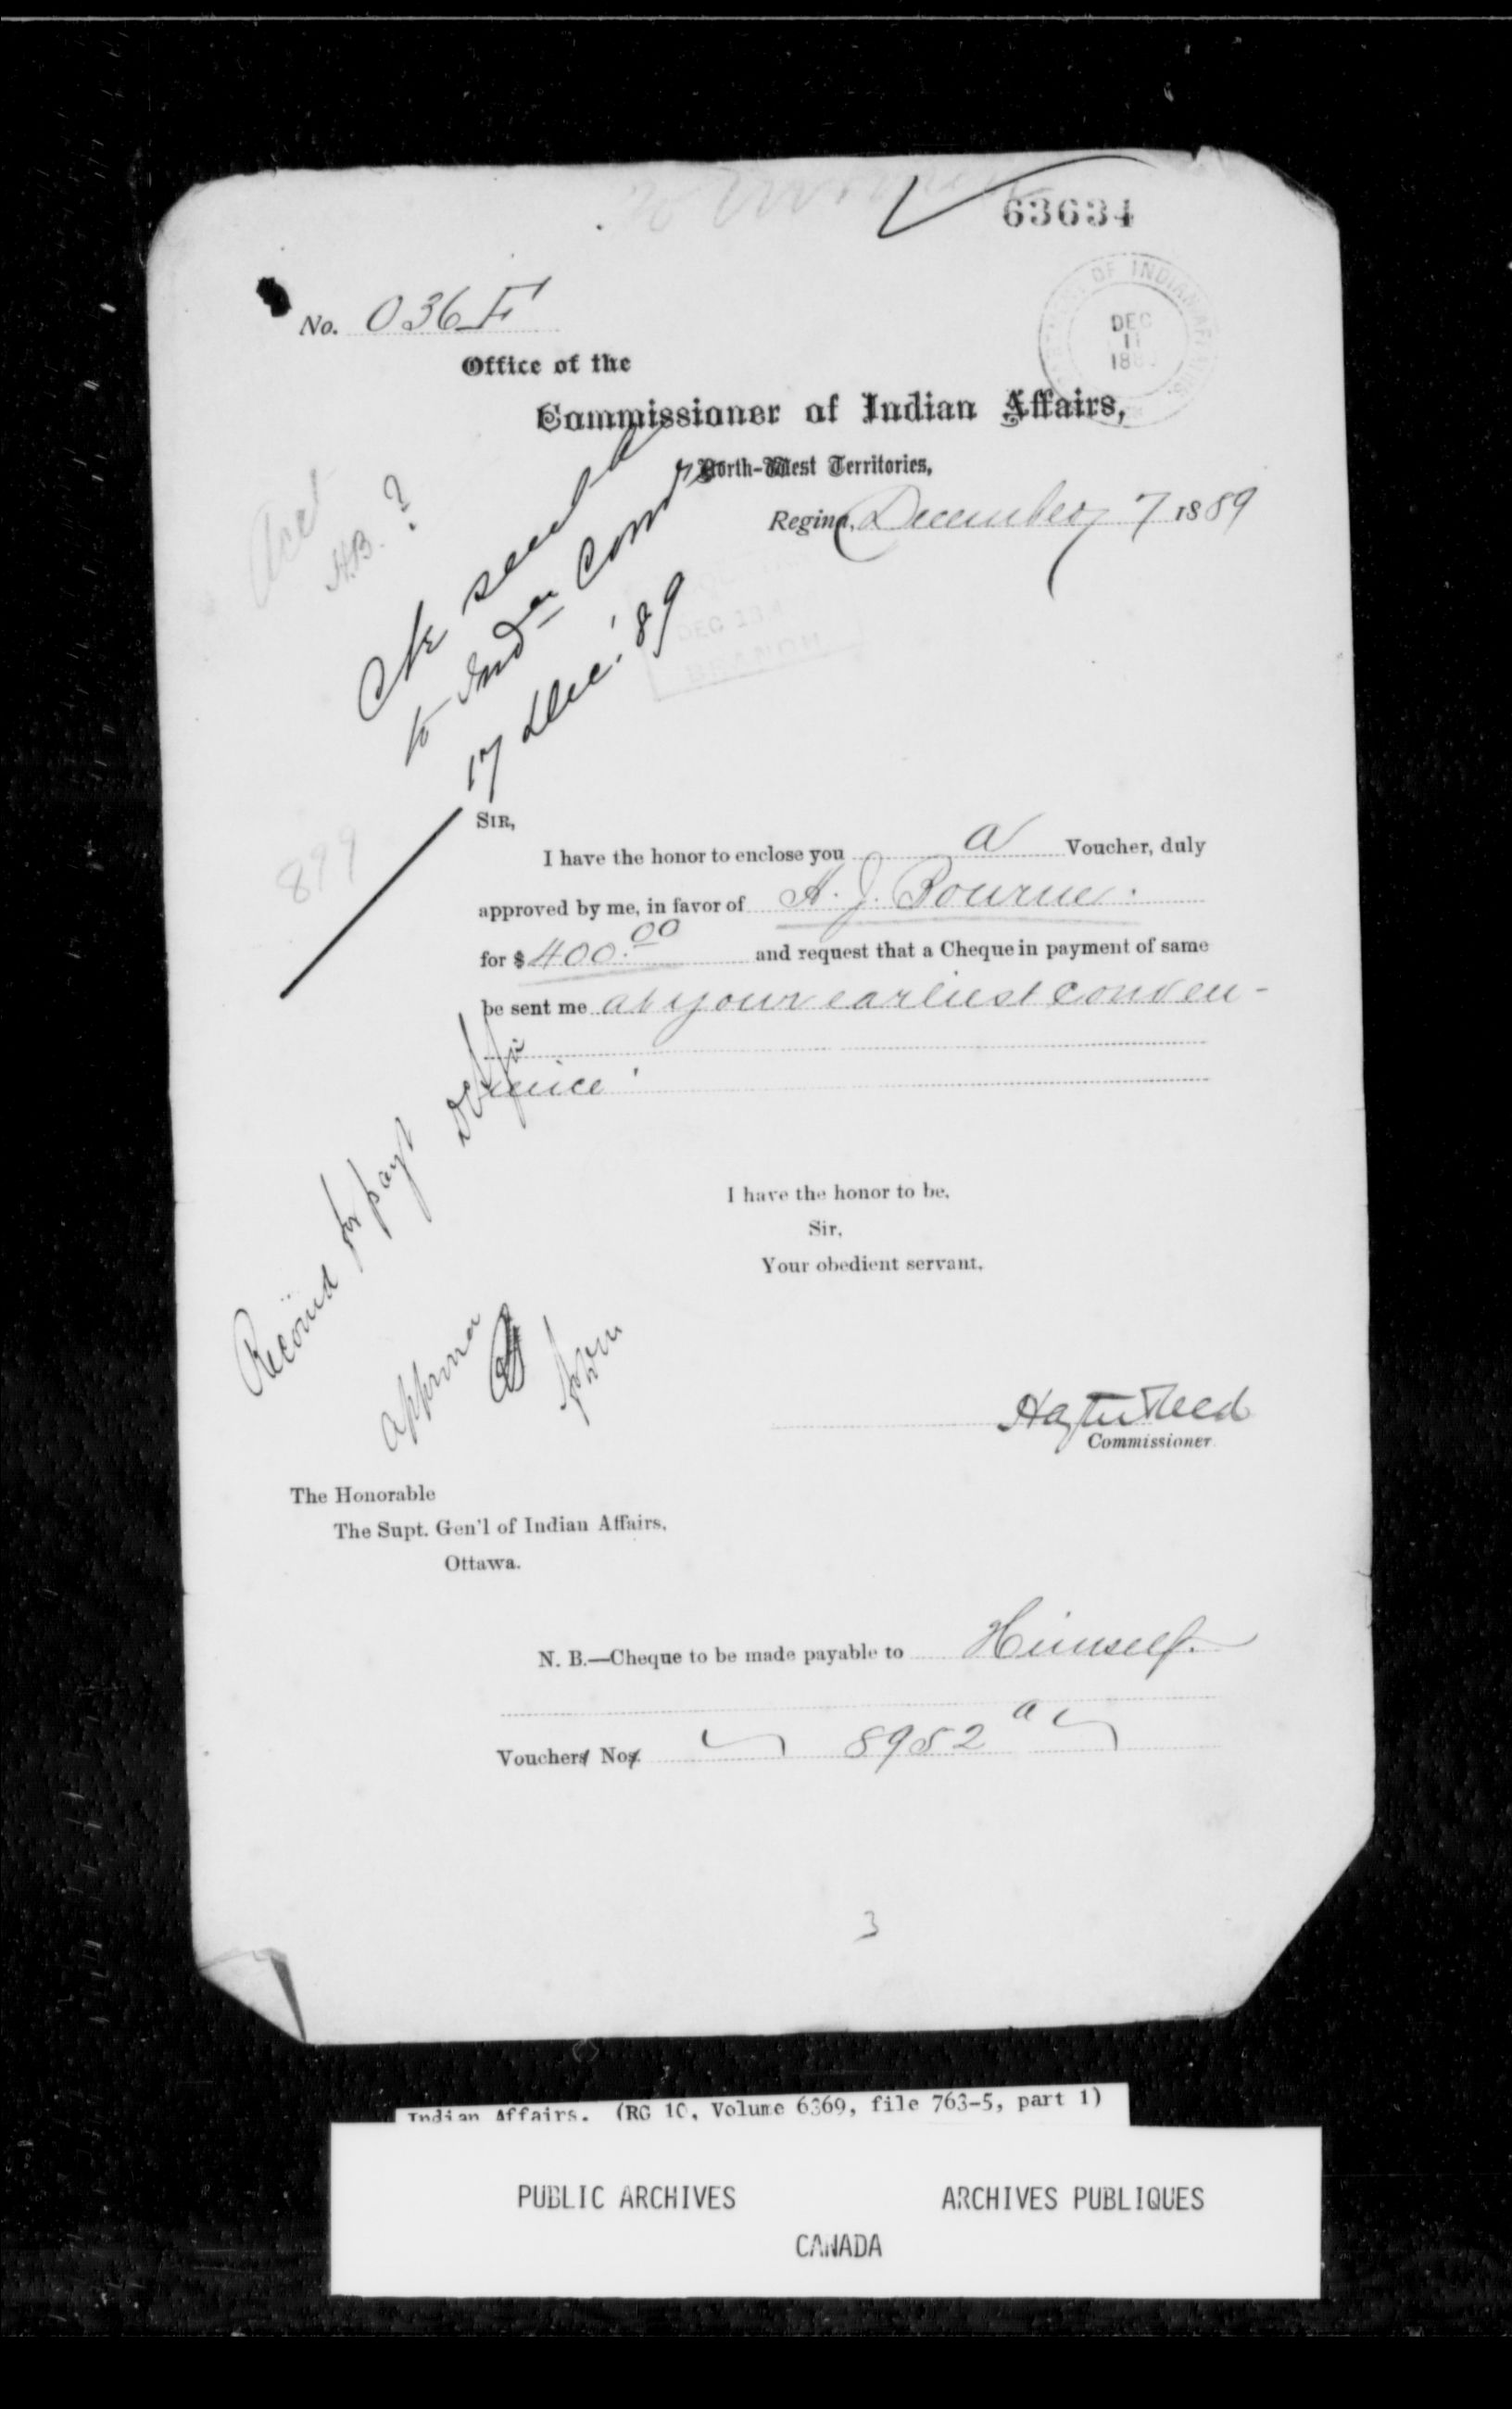 63634
No. 036 F
DEPARTMENT OF INDIAN AFFAIRS
DEC
11
188
Office of the
Commissioner of Indian Affairs,
North-West Territories,
Regina, December 7 1889
Acct
H.B. ?
Ck sent
to Indn Comr
17 Dec. '89
DEC
BRANCH
899
SIR,
I have the honor to enclose you a Voucher, duly
approved by me, in favor of H. J. Bourne.
for $ 400.00 and request that a Cheque in payment of same
be sent me at your earliest conven-
ience.
Recomd for payt
I have the honor to be,
Sir,
Your obedient servant,
Hayter Reed
Commissioner.
The Honorable
The Supt. Gen'l of Indian Affairs,
Ottawa.
N. B.—Cheque to be made payable to Himself.
Vouchers Nos. 8952 a
3
Indian Affairs. (RG 10, Volume 6369, file 763-5, part 1)
PUBLIC ARCHIVES ARCHIVES PUBLIQUES
CANADA